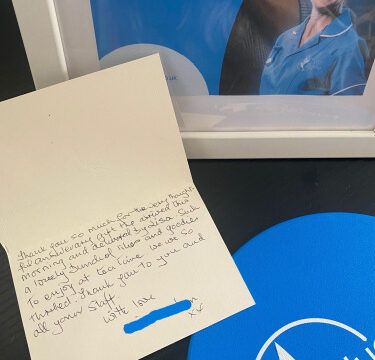 Thank you so much for the very thoughtful
anniversary gift the arrived this
morning and delivered by Lisa. Such
a lovely bundle of and goodies
to enjoy at tea time we are so
thrilled. Thank you to you and
all your staff
With love
xx
uk